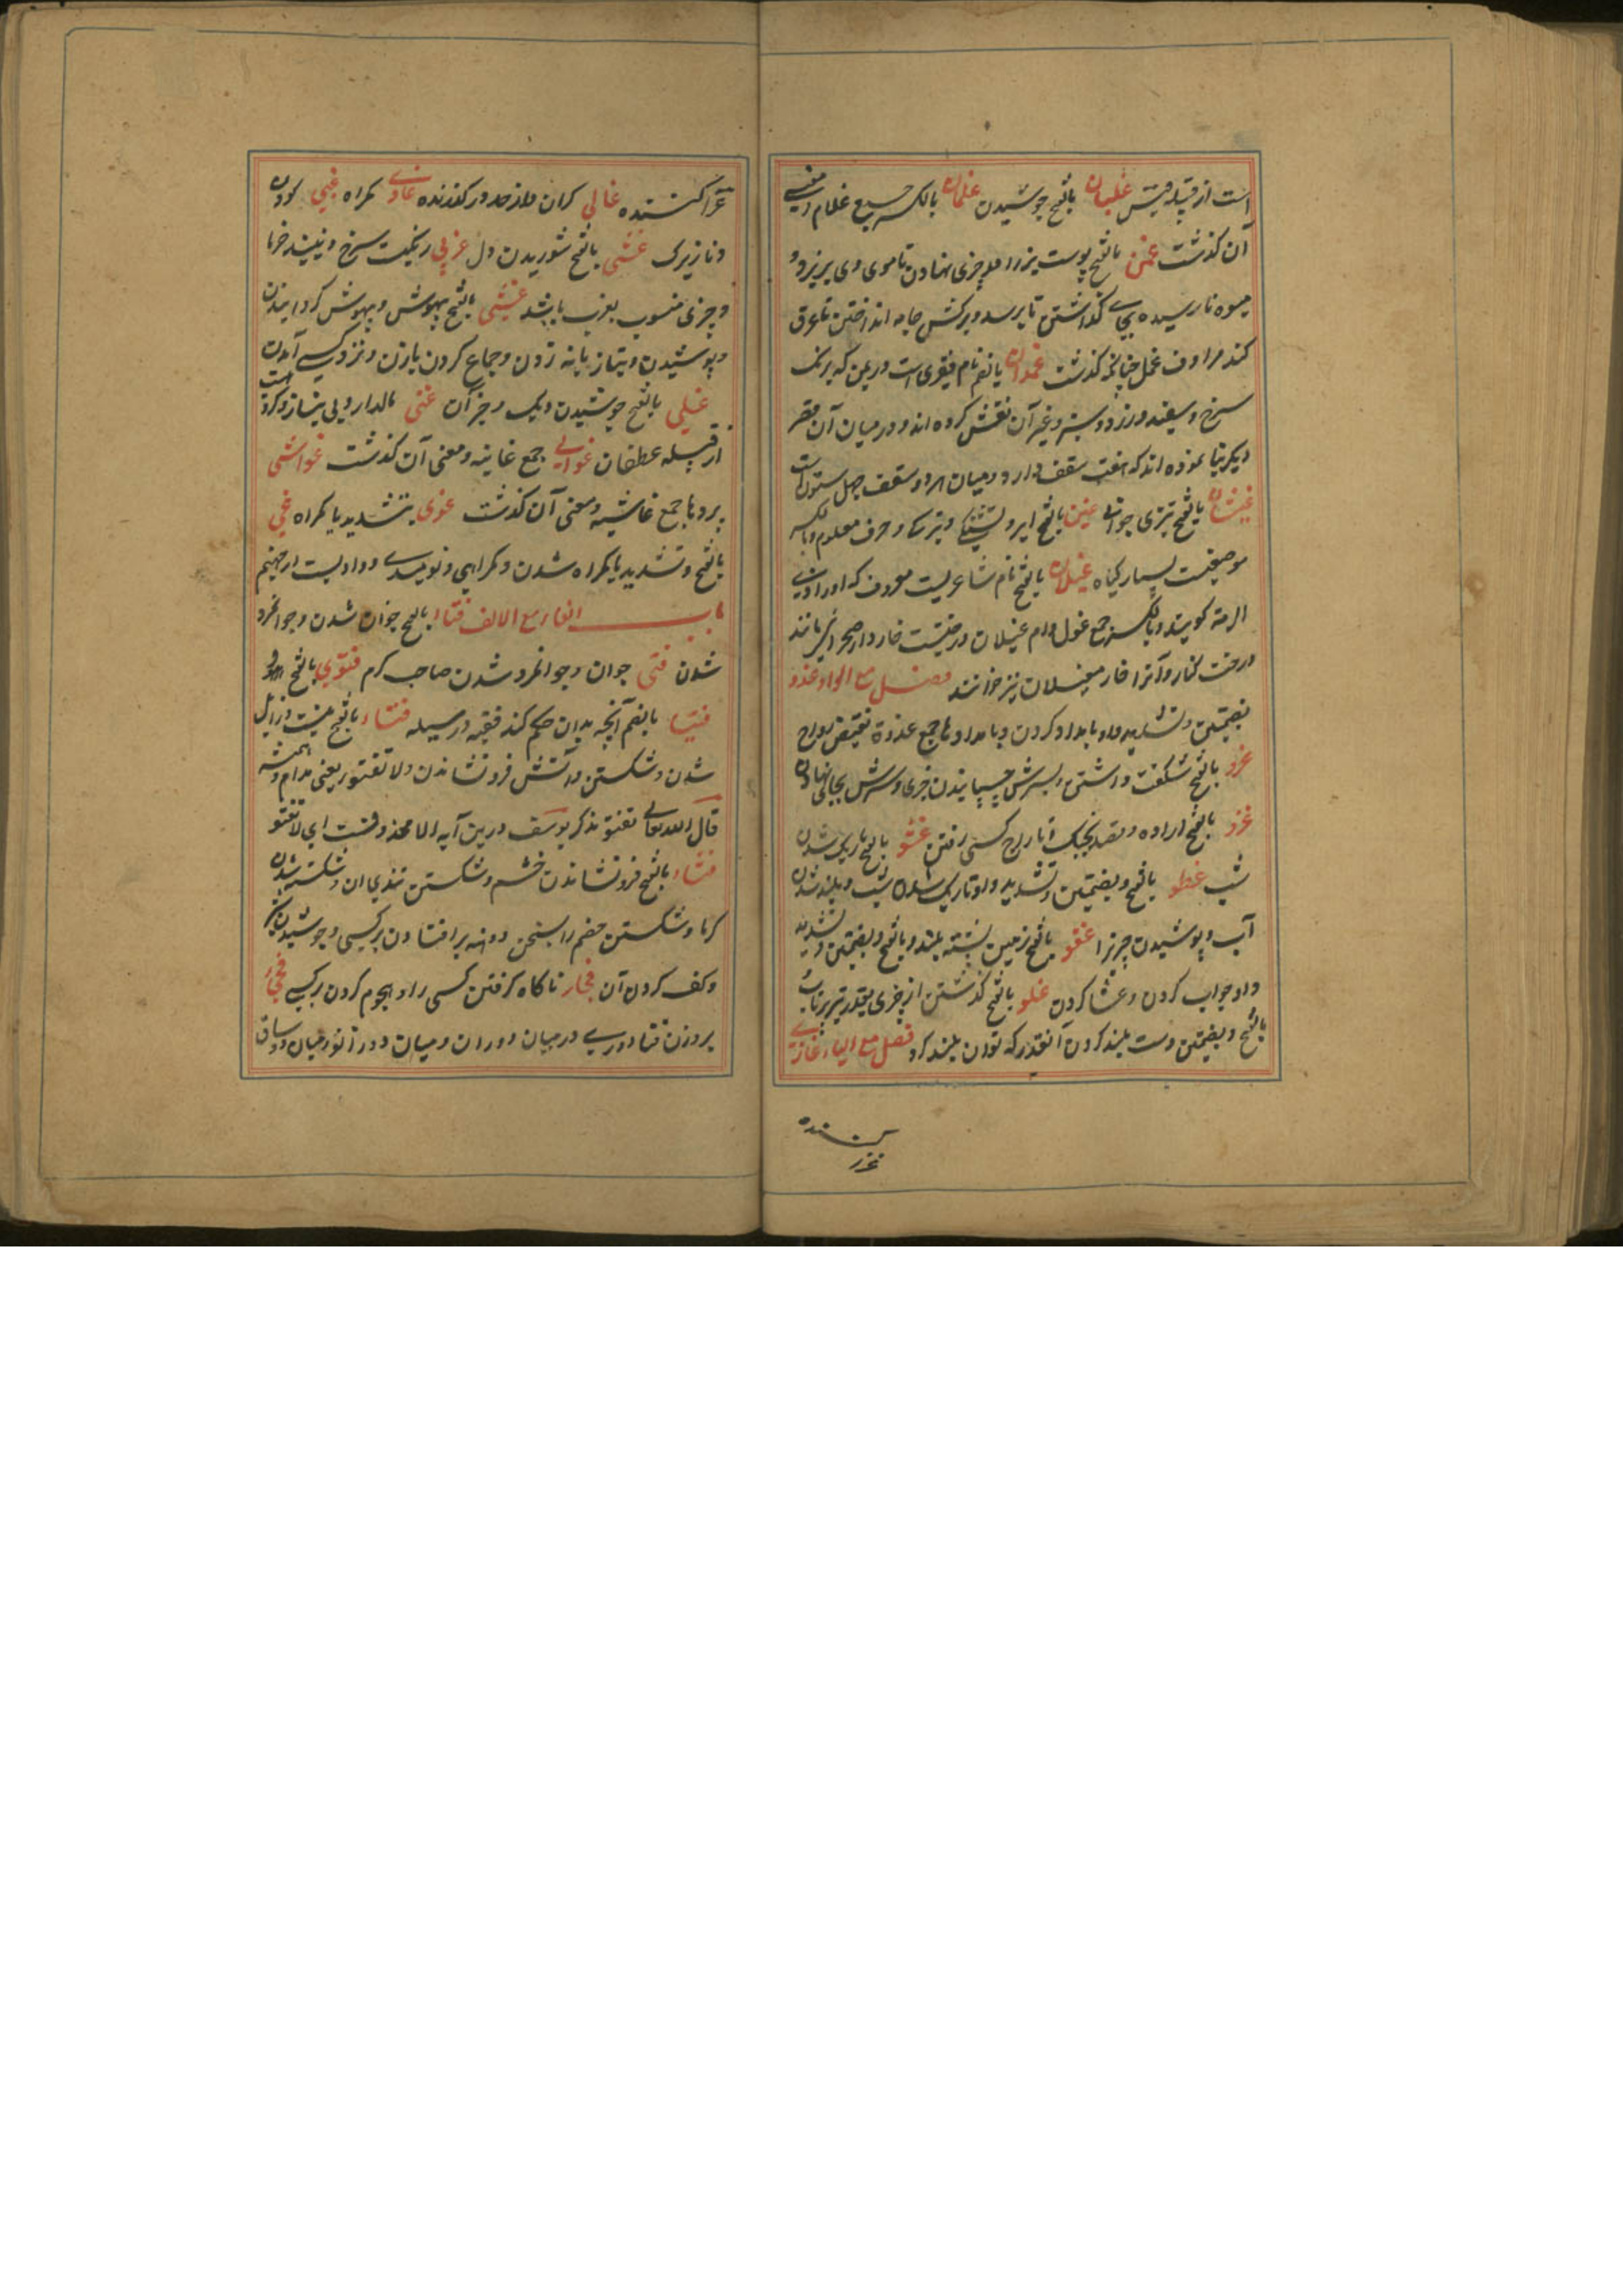 است از قبیله قیس غلیان بالفتح جوشیدن غلمان بالکسر جمع غلام و معنی
آن گذشت غمن بالفتح پوست نهادن تا موی وی بریزد و
میوه نارسیده بجای گذاشتن تا برسد و برکش جامه انداختن تا عرق
کند مرادف غمل چنانکه گذشت غمدان بالضم نام قصری است در یمن که برنگ
سرخ و سفید و زرد و سبز و غیر آن نقش کرده اند و در میان آن قصر
دیگر بنا نموده اند که هفت سقف دارد و میان هر دو سقف چهل ستون است
بالفتح تیزی جوانی غین بالفتح ابر و تشنگی و حرف معلوم و بالکسر
موضعیست بسیار گیاه غیلان بالفتح نام شاعریست معروف که او را ذی
الرمة گویند و بالکسر جمع غول و ام غیلان درختیست خاردار صحرائی مانند
درخت کنار و آنرا خار مغیلان نیز خوانند فصل مع الواو غدو
بضمتین و تشدید واو بامداد کردن و بامدادها جمع غدوة نقیض رواح
غرو بالفتح شگفت داشتن و بسرش چسپانیدن چیزی و سرش بجائی نهادن
غزو بالفتح اراده و قصد بجنگ و تاراج کسی رفتن غسو بالفتح تاریک شدن
شب غطو بالفتح و بضمتین و تشدید واو تاریک شدن شب و بلند شدن
آب و پوشیدن چیز را غفو بالفتح زمین پشته بلند و بالفتح و بضمتین و تشدید
واو خواب کردن غلو بالفتح گذشتن از چیزی بقدر تیر پرتاب
بالفتح و بضمتین دست بلند کردن آنقدر که توان بلند کرد فصل مع الیاء غازی
غزا کننده
غزا کننده غالی گران و از حد در گذرنده غاوی گمراه غبی کودن
و نازیرک غشی بالفتح شوریدن دل غربی رنگیست سرخ و نبیذ خرما
و چیزی منسوب بغرب باشد غشی بالفتح بیهوش و بیهوش گردانیدن
و پوشیدن و بتازیانه زدن و جماع کردن با زن و نزد کسی آمدن
غلی بالفتح جوشیدن دیگ و جز آن غنی مالدار و بی نیاز و گروهی است
از قبیله غطفان غوانی جمع غانیه و معنی آن گذشت غواشی
پردها جمع غاشیه و معنی آن گذشت غوی بتشدید یا گمراه غی
بالفتح و تشدید یا گمراه شدن و گمراهی و نومیدی و وادیست از جهنم
باب الفاء مع الالف فتاء بالفتح جوان شدن و جوانمرد
شدن فتی جوان و جوانمرد شدن صاحب کرم فتوی بالفتح و
فتیا بالضم آنچه بدان حکم کند فقیه در مسئله فتاء بالفتح نیست و زایل
شدن و شکستن و آتش فرو نشاندن و لا تفتؤ یعنی مدام و همیشه
قال الله تعالی تفتؤ تذکر یوسف درین آیه لا محذوفست ای لا تفتؤ
فثاء بالفتح فرو نشاندن خشم و شکستن تندی آن و شکسته شدن
گرما و شکستن خصم را بسخن و جوشیدن شیر
و کف کردن آن فجاء ناگاه گرفتن کسی را و هجوم کردن بر کسی
بر وزن فتا دوری در میان دو ران و میان دو زانو و میان دو ساق